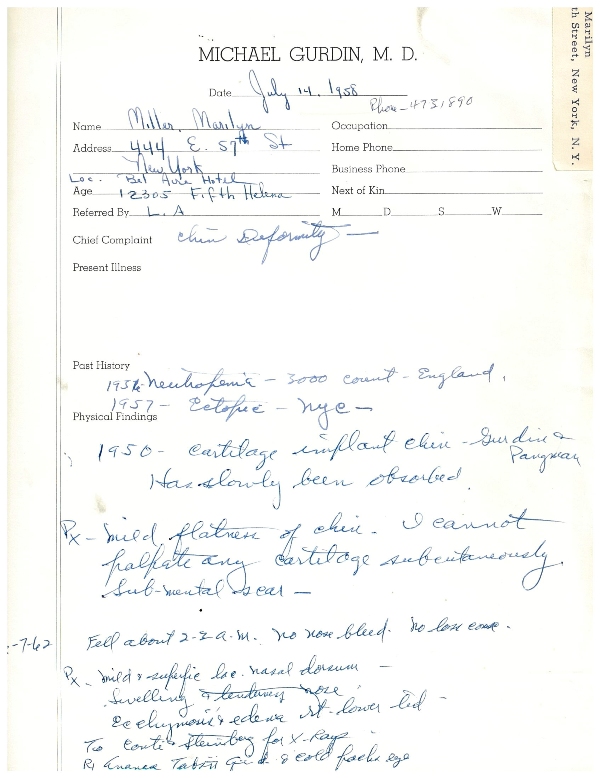 Marilyn
th Street, New York, N. Y.
MICHAEL GURDIN, M. D.
Date July 14, 1958
Phone - 4731890
Name Miller, Marilyn
Occupation
Address 444 E. 57th St
Home Phone
New York
Business Phone
Loc. Bel Aire Hotel
Age 12305 Fifth Helena
Next of Kin
Referred By L. A
M D S W
Chief Complaint chin deformity —
Present Illness
Past History
1956 - Neutropenia - 3000 count - England,
1957 - Ectopic - NYC -
Physical Findings
1950 - cartilage implant chin - Gurdin &
Pangman
Has slowly been absorbed.
Px - mild flatness of chin. I cannot
palpate any cartilage subcutaneously.
Sub-mental scar -
-7-62 Fell about 2-2 a.m. No nose bleed. No loss consc.
Px - mild & superfic lac. nasal dorsum -
Swelling & tenderness nose
Ecchymosis & edema rt. lower lid -
To Conti & Steinberg for X-Rays
Rx Ananase Tabs ii q.i.d. & cold packs eye